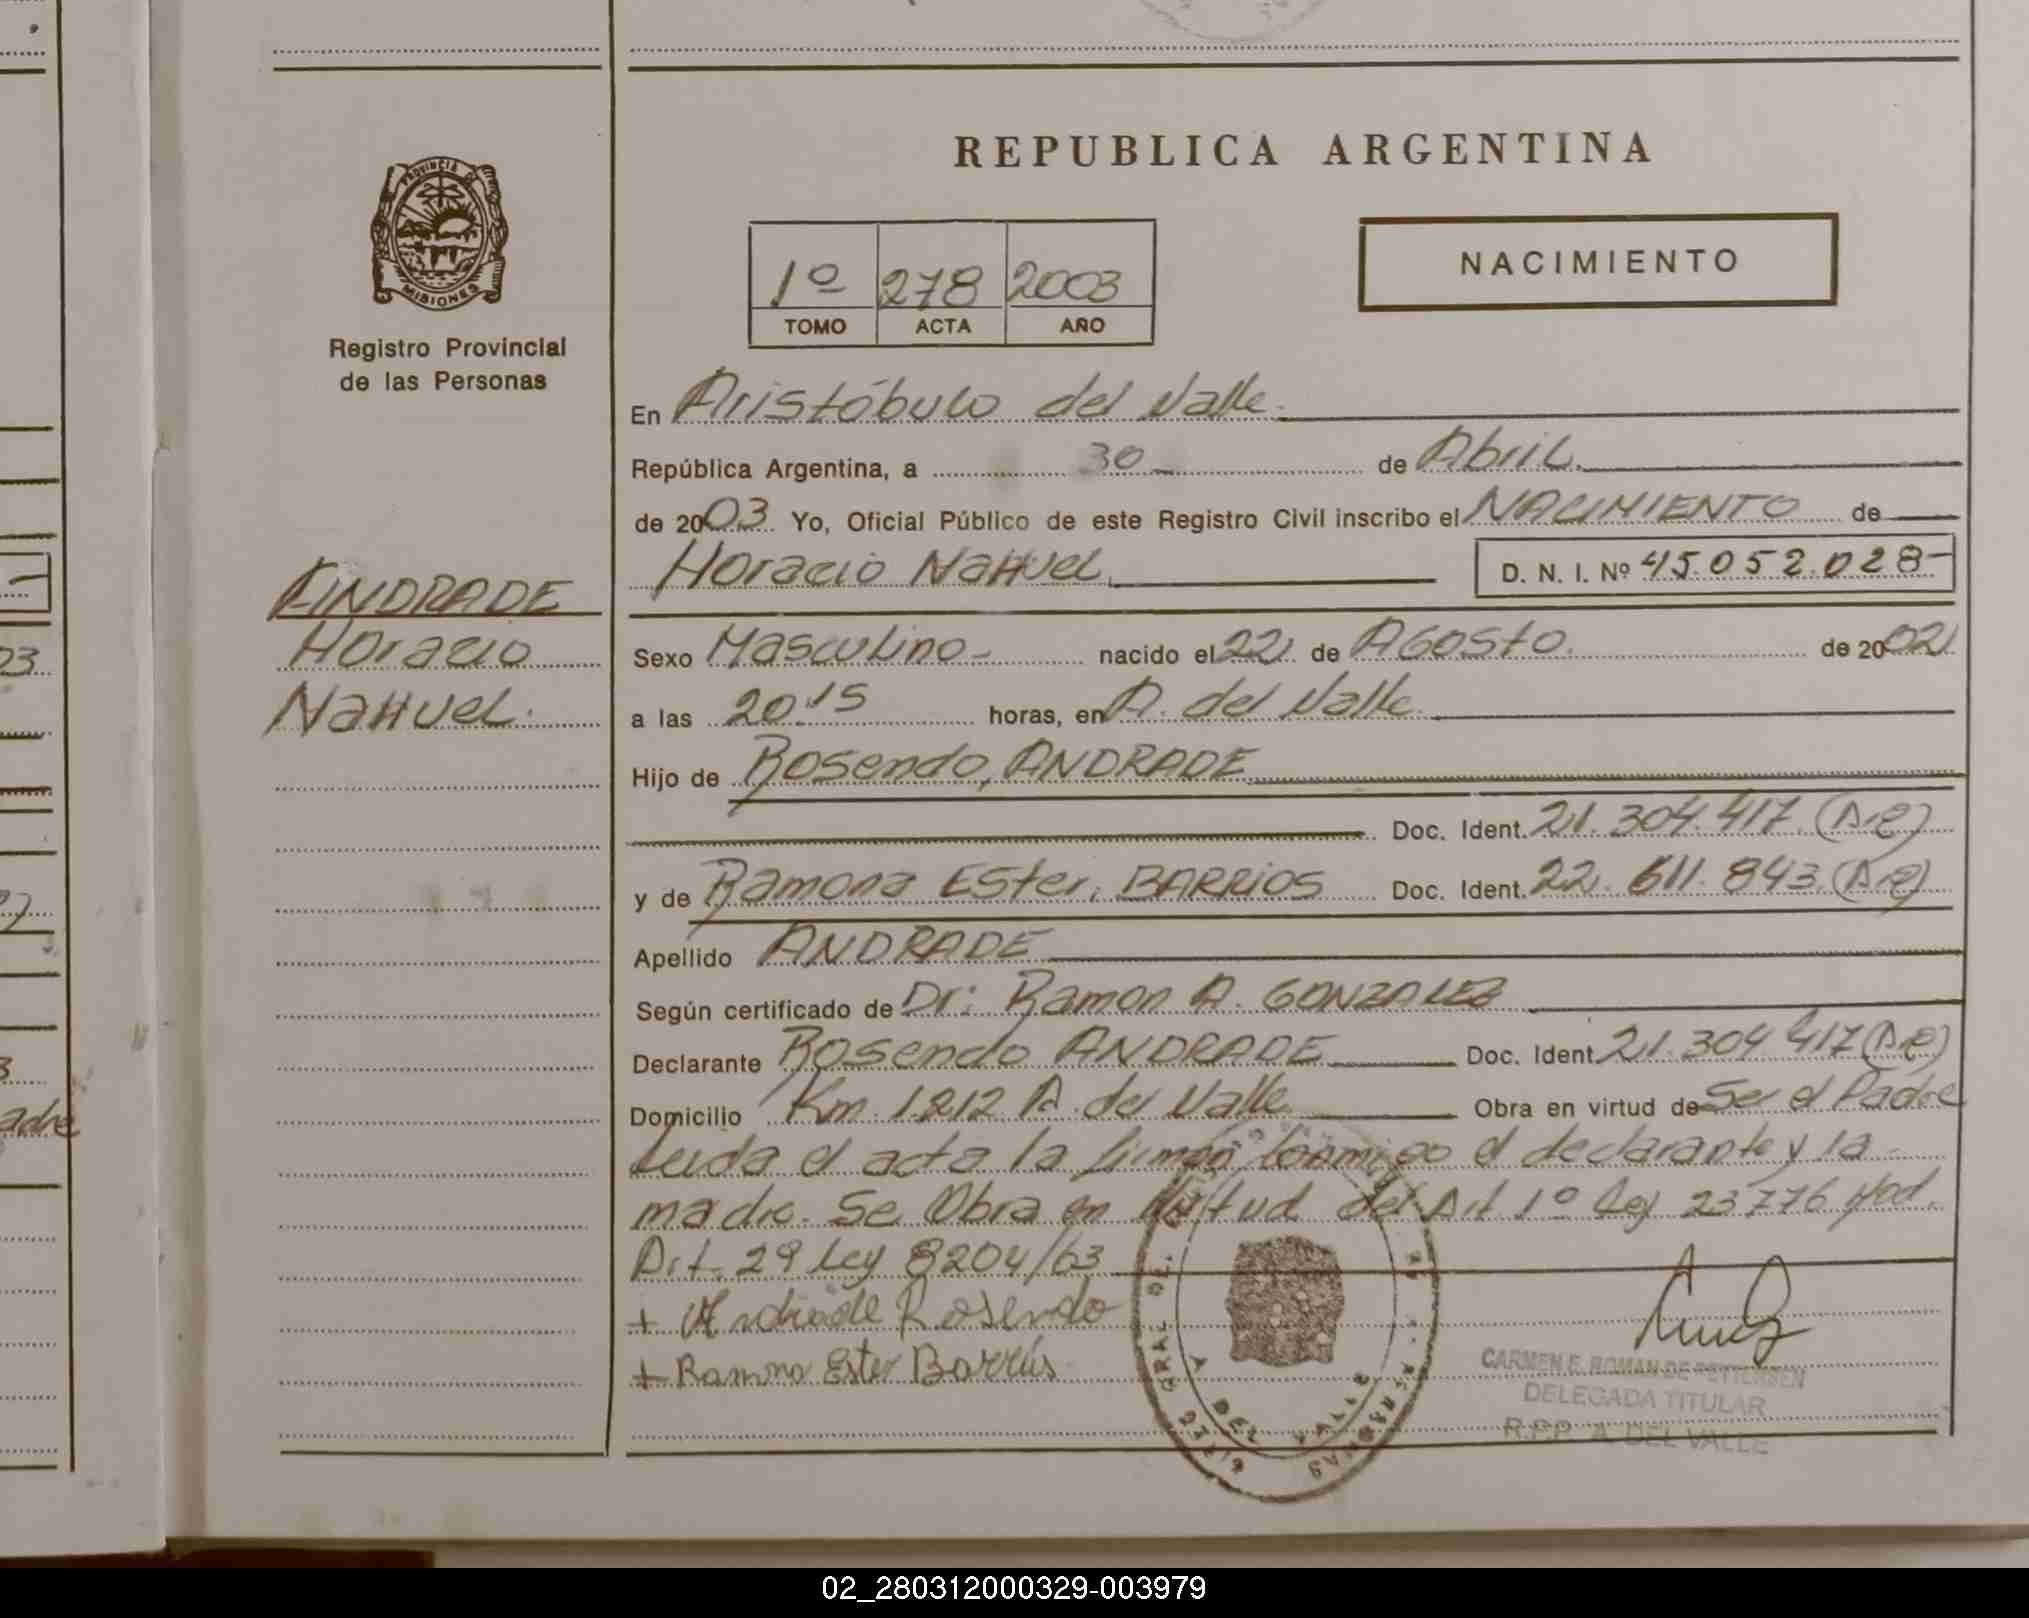 REPUBLICA ARGENTINA
PROVINCIA DE
MISIONES
Registro Provincial
de las Personas
1º 278 2003
TOMO ACTA AÑO
NACIMIENTO
En Aristóbulo del Valle.
República Argentina, a 30 de Abril.
de 2003 Yo, Oficial Público de este Registro Civil inscribo el NACIMIENTO de
Horacio Nahuel D. N. I. Nº 45.052.028-
ANDRADE
Horacio
Nahuel.
Sexo Masculino- nacido el 22 de Agosto. de 2002
a las 20:15 horas, en A. del Valle.
Hijo de Rosendo, ANDRADE
Doc. Ident. 21.304.417. (A-R)
y de Ramona Ester, BARRIOS Doc. Ident. 22.611.843. (A-R)
Apellido ANDRADE
Según certificado de Dr: Ramon A. GONZALEZ
Declarante Rosendo ANDRADE Doc. Ident. 21.304 417 (A-R)
Domicilio Km. 1.212 A. del Valle Obra en virtud de Ser el Padre
Leida el acta la firman conmigo el declarante y la
madre. Se Obra en virtud del Art 1º Ley 23776 Mod.
Art. 29 Ley 8204/63
+ Andrade Rosendo
+ Ramona Ester Barrios
CARMEN E. ROMAN DE PETTERSEN
DELEGADA TITULAR
R.P.P. A. DEL VALLE
A DEL VALLE
03
adre
02_280312000329-003979